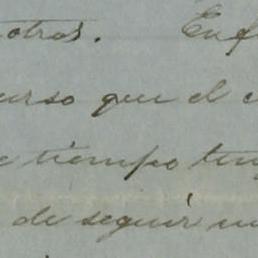 otras. Enf
urso que el c
e tiempo ten
de seguir